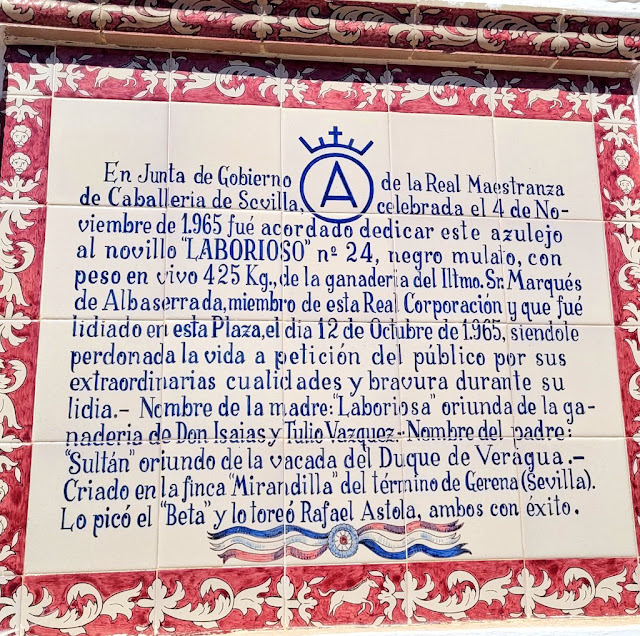 A
En Junta de Gobierno de la Real Maestranza
de Caballeria de Sevilla, celebrada el 4 de No-
viembre de 1.965 fué acordado dedicar este azulejo
al novillo "LABORIOSO" nº 24, negro mulato, con
peso en vivo 425 Kg., de la ganaderia del Iltmo. Sr. Marqués
de Albaserrada, miembro de esta Real Corporación y que fué
lidiado en esta Plaza, el dia 12 de Octubre de 1.965, siendole
perdonada la vida a petición del público por sus
extraordinarias cualidades y bravura durante su
lidia.- Nombre de la madre: "Laboriosa" oriunda de la ga-
naderia de Don Isaias y Tulio Vazquez.- Nombre del padre:
"Sultán" oriundo de la vacada del Duque de Veragua.-
Criado en la finca "Mirandilla" del término de Gerena (Sevilla).
Lo picó el "Beta" y lo toreó Rafael Astola, ambos con éxito.